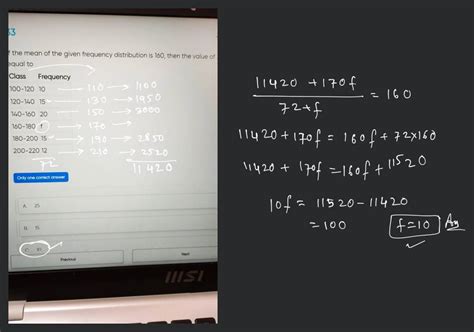 33
f the mean of the given frequency distribution is 160, then the value of
equal to
Class Frequency
100-120 10 → 110 → 1100
120-140 15 → 130 → 1950
140-160 20 → 150 → 3000
160-180 f → 170 →
180-200 15 → 190 → 2850
200-220 12 → 210 → 2520
72 11420
Only one correct answer
A. 25
B. 15
C. 10
Previous
Next
msi
11420 + 170f
72+f
= 160
11420+170f = 160f + 72×160
11420 + 170f = 160f + 11520
10f = 11520 - 11420
= 100
f=10 Ans